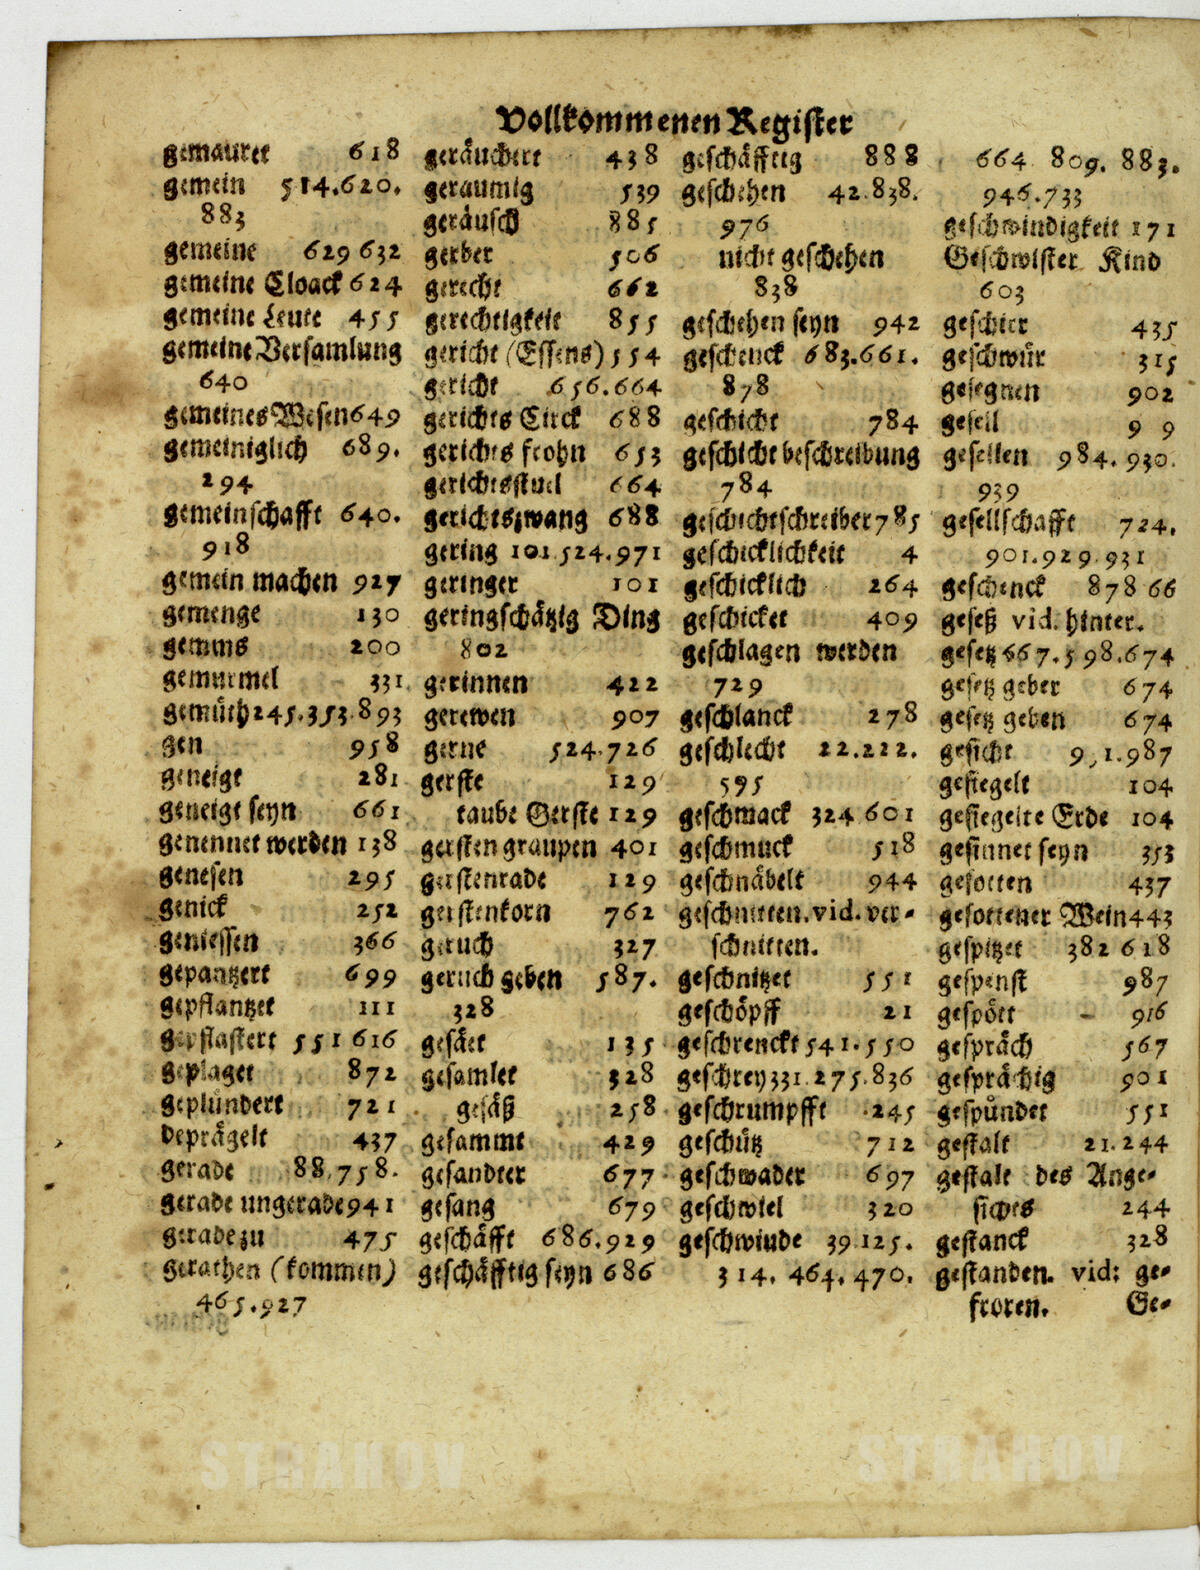 Vollkommenen Register
gemauret 618
gemein 514.620.
883
gemeine 629 632
gemeine Cloack 624
gemeine Leute 455
gemeine Versamlung
640
gemeines Wesen 649
gemeiniglich 689.
294
gemeinschafft 640.
918
gemein machen 927
gemenge 130
gemms 200
gemurmel 331
gemüth 245.353.893
gen 958
geneigt 281
geneigt seyn 661
genennet werden 138
genesen 295
genick 252
geniessen 366
gepantzert 699
gepflantzet 111
gepflastert 551 616
geplaget 872
geplündert 721
deprägelt 437
gerade 88.758.
gerade ungerade 941
gerade zu 475
gerathen (kommen)
465.927
geräuchert 438
geraumig 539
geräusch 885
gerber 506
gerecht 662
gerechtigkeit 855
gericht (Essens) 554
gericht 656.664
gerichts Circk 688
gerichts frohn 653
gerichtsstuel 664
gerichtszwang 688
gering 101 524.971
geringer 101
geringschätzig Ding
802
gerinnen 422
gerewen 907
gerne 524.726
gerste 129
taube Gerste 129
gersten graupen 401
gerstenrade 129
gerstenkorn 762
geruch 327
geruch geben 587.
328
gesäet 135
gesamlet 328
gesäß 258
gesammt 429
gesandter 677
gesang 679
geschäfft 686.929
geschäfftig seyn 686
geschäfftig 888
geschehen 42.838.
976
nicht geschehen
838
geschehen seyn 942
geschenck 683.661.
878
geschicht 784
geschicht beschreibung
784
geschichtschreiber 785
geschicklichkeit 4
geschicklich 264
geschicket 409
geschlagen werden
729
geschlanck 278
geschlecht 22.222.
595
geschmack 324 601
geschmuck 518
geschnäbelt 944
geschnitten. vid. ver-
schnitten.
geschnitzet 551
geschöpff 21
geschrenckt 541.550
geschrey 331.275.836
geschrumpfft 245
geschütz 712
geschwader 697
geschwiel 320
geschwinde 39.125.
314. 464. 470.
664 809. 883.
946.733
geschwindigkeit 171
Geschwister Kind
603
geschier 435
geschwür 315
gesegnen 902
gesell 9 9
gesellen 984. 930.
939
gesellschafft 724.
901.929.931
geschenck 878 66
geseß vid. hinter.
gesetz 667.598.674
gesetz geber 674
gesetz geben 674
gesicht 9,1.987
gesiegelt 104
gesiegelte Erde 104
gesinnet seyn 353
gesotten 437
gesottener Wein 443
gespitzet 382 618
gespenst 987
gespött 916
gespräch 567
gesprächig 901
gespündet 551
gestalt 21.244
gestalt des Ange-
sichts 244
gestanck 328
gestanden. vid: ge-
froren. Ge-
STRAHOV STRAHOV